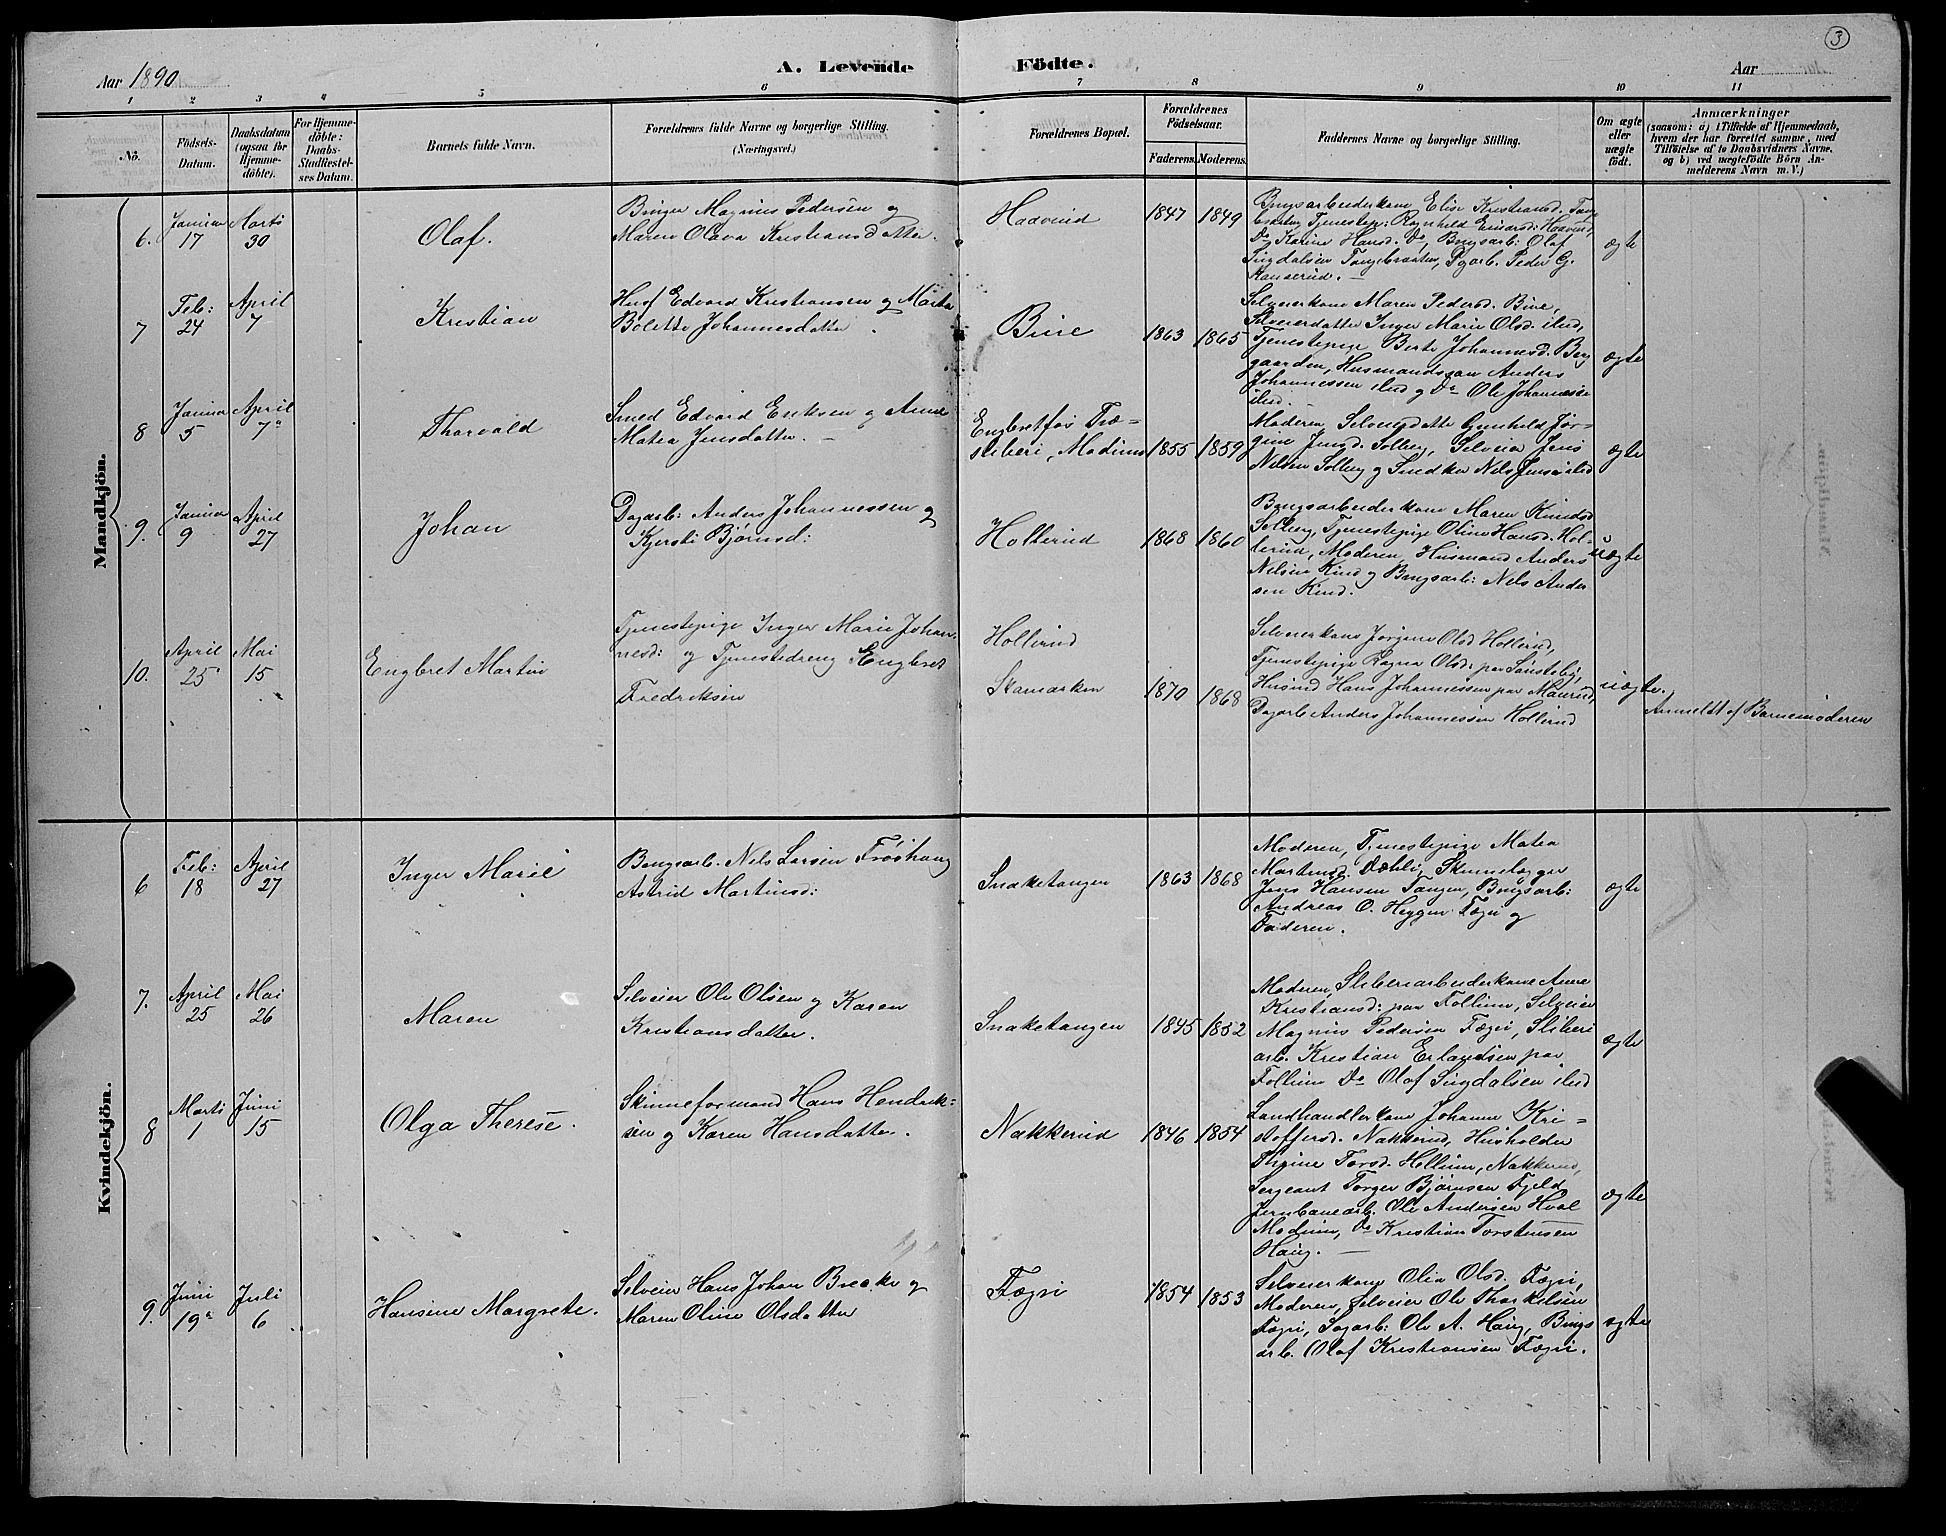 3
Aar 1890
A. Levende Födte.
Aar
1 2 3 4 5 6 7 8 9 10 11
No.
Födsels-Datum.
Daabsdatum (ogsaa for Hjemme-döbte).
For Hjemme-döbte: Daabs-Stadfæstel-ses Datum.
Barnets fulde Navn.
Forældrenes fulde Navne og borgerlige Stilling. (Næringsvei.)
Forældrenes Bopæl.
Forældrenes Födselsaar.
Faderens. Moderens.
Faddernes Navne og borgerlige Stilling.
Om ægte eller uægte födt.
Anmærkninger
(saasom: a) i Tilfælde af Hjemmedaab,
hvem der har forrettet samme, med
Tilföielse af to Daabsvidners Navne,
og b) ved uægtefödte Börn An-
melderens Navn m. V.)
Mandkjön.
6. Januar 17 Marts 30
Olaf.
Magnus Pedersen og
Maren Olava Kristiansdatter.
Haavrud
1847 1849
Brugsarbeiderkone Elise Kristiansd.
Tjenestepige: Ragnhild Einarsd: Haavrud,
Do Karine Hansd. Do, Brugsarb: Olaf
Singdalsen Tangebraaten, Peder G.
ægte
7 Feb: 24 April 7
Kristian
Husf Edvard Kristiansen og Marta
Bolette Johannesdatter.
Bure
1863 1865
Selveierkone Maren Pedersd. Bure,
Selveierdatter Inger Marie Olsd. ibid,
Tjenestepige Berte Johannesd. Berg
gaarden, Husmandssøn Anders
Johannessen ibid og Do Ole Johannessen
ibid.
ægte
8 Januar 5 April 7
Thorvald
Smed Edvard Eriksen og Anne
Matea Jensdatter.
Engbretfos Træ=
sliberi, Modum
1855 1859
Moderen, Gunhild Jør-
gine Jensd. Solberg, Selveier Jens
Nilsen Solberg og Nils Jensen ibid
ægte
9. Januar 9 April 27
Johan
Dagarb: Anders Johannessen og
Kjersti Bjørnsd:
Hollerud
1868 1860
Brugsarbeiderkone Maren Knudsd
Solberg, Tjenestepige Oline Hansd. Hol-
lerud, Moderen, Husmand Anders
Nilsen Rud og Brugsarb: Nils Ander
sen Rud.
uægte
10. April 25 Mai 15
Engbret Martin
Tjenestepige Inger Marie Johan
nesd: og Tjenestedreng Engbret
Fredriksen
Hollerud
Skamarken
1870 1868
Selveierkone Jørgine Olsd Hollerud,
Tjenestepige Ragna Olsd: paa Sønsteby,
Husmd Hans Johannessen paa Maurud,
Dagarb Anders Johannessen Hollerud
uægte.
Anmeldt af Barnemoderen
Kvindekjön.
6 Feb: 18 April 27
Inger Marie
Brugsarb. Nils Larsen Frøshaug
Astrid Martinsd:
Snaketangen
1863 1868
Moderen, Tjenestepige Matea
Martinsd. Dæhli, Skinnelægger
Jens Hansen Tangen, Brugsarb:
Andreas O. Heggen Fægri og
Faderen.
ægte
7. April 25 Mai 26
Maren
Selveier Ole Olsen og Karen
Kristiansdatter.
Snaketangen
1845 1852
Moderen, Sliberiarbeiderkone Anne
Kristiansd: paa Follum, Selveier
Magnus Pedersen Fægri, Sliberi
arb. Kristian Erlandsen paa
Follum Do Olaf Singdalsen ibid
ægte
8 Marts 1 Juni 15
Olga Therese.
Skinneformand Hans Hendrik-
sen og Karen Hansdatter.
Nakkerud
1846 1854
Landhandlerkone Johanne Kri=
stoffersd. Nakkerud, Husholder
Torsd. Hellum, Nakkerud,
Sergeant Torger Bjørnsen Fjeld
Jernbanearb. Ole Andersen Hval
Modum, Do Kristian Torstensen
Haug.
ægte
9. Juni 19 Juli 6
Hansine Margrete.
Selveier Hans Johan Braake og
Maren Oline Olsdatter
Fægri
1854 1853
Selveierkone Olia Olsd. Fægri,
Moderen, Selveier Ole Thorkelsen
Fægri, Sagarb: Ole A. Haug, Brugs
arb. Olaf Kristiansen Fægri.
ægte